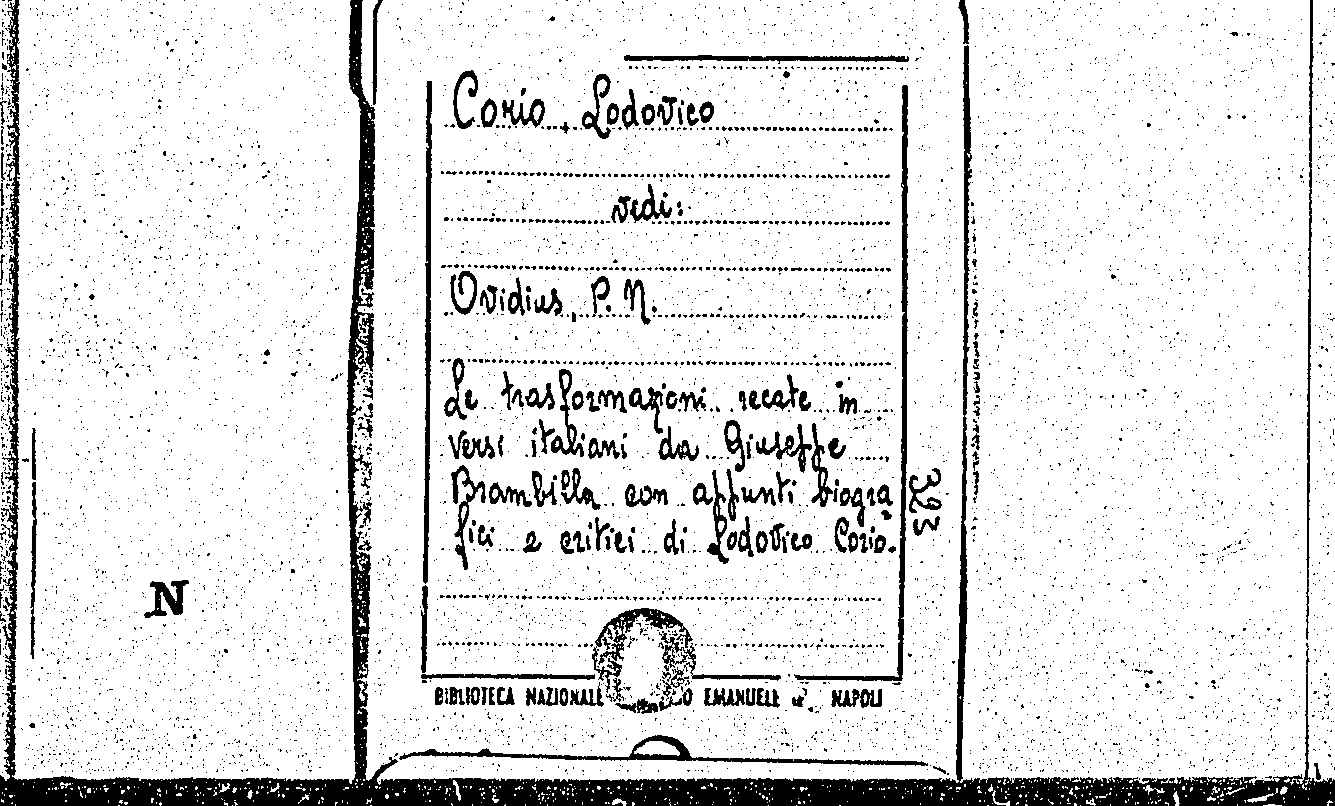 Corio, Lodovico
vedi:
Ovidius, P. N.
Le trasformazioni recate in
versi italiani da Giuseppe
Brambilla con appunti biogra
fici e critici di Lodovico Corio.
323
N
BIBLIOTECA NAZIONALE O EMANUELE NAPOLI